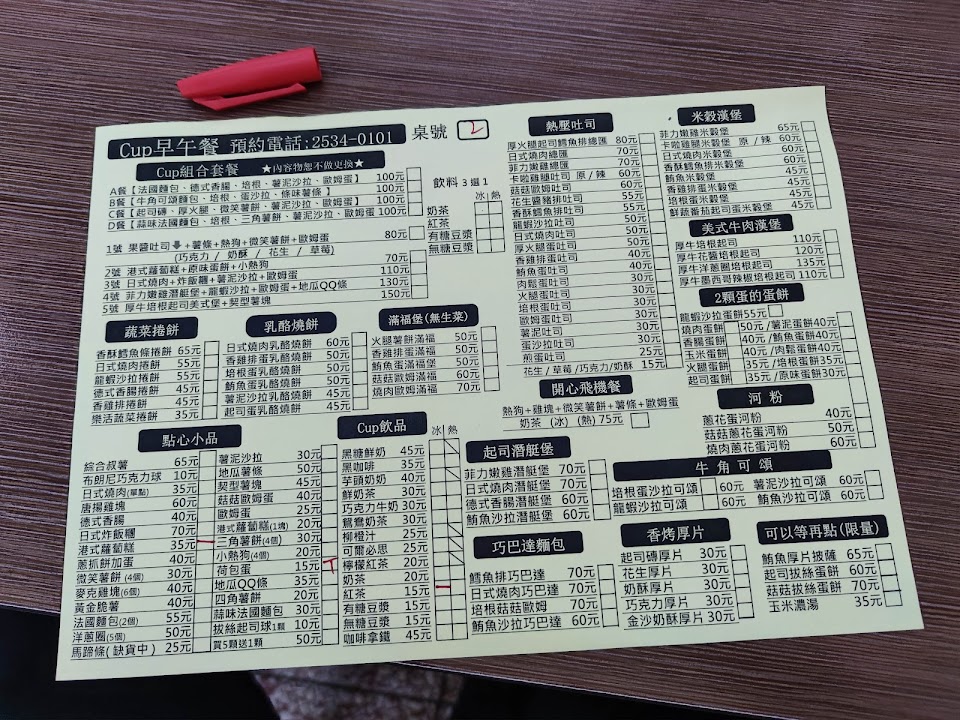 Cup早午餐 預約電話:2534-0101 桌號 2
Cup組合套餐 ★內容物恕不做更換★
A餐【法國麵包、德式香腸、培根、薯泥沙拉、歐姆蛋】 100元
B餐【牛角可頌麵包、培根、蛋沙拉、條味薯條】 100元
C餐【起司磚、厚火腿、微笑薯餅、薯泥沙拉、歐姆蛋】 100元
D餐【蒜味法國麵包、培根、三角薯餅、薯泥沙拉、歐姆蛋 100元
飲料 3 選 1
冰 熱
奶茶
紅茶
有糖豆漿
無糖豆漿
1號 果醬吐司+薯條+熱狗+微笑薯餅+歐姆蛋 80元
(巧克力 / 奶酥 / 花生 / 草莓)
2號 港式蘿蔔糕+原味蛋餅+小熱狗 70元
3號 日式燒肉+炸飯糰+薯泥沙拉+歐姆蛋 110元
4號 菲力嫩雞潛艇堡+龍蝦沙拉+歐姆蛋+地瓜QQ條 130元
5號 厚牛培根起司美式堡+契型薯塊 150元
蔬菜捲餅
香酥鱈魚條捲餅 65元
日式燒肉捲餅 55元
龍蝦沙拉捲餅 55元
德式香腸捲餅 45元
香雞排捲餅 45元
樂活蔬菜捲餅 35元
乳酪燒餅
日式燒肉乳酪燒餅 60元
香雞排蛋乳酪燒餅 50元
培根蛋乳酪燒餅 50元
鮪魚蛋乳酪燒餅 50元
薯泥沙拉乳酪燒餅 45元
起司蛋乳酪燒餅 45元
滿福堡(無生菜)
火腿薯餅滿福 50元
香雞排蛋滿福 50元
鮪魚蛋薯滿福 50元
菇菇歐姆滿福 60元
燒肉歐姆蛋滿福 70元
點心小品
綜合叔薯 65元
布朗尼巧克力球 10元
日式燒肉(單點) 35元
唐揚雞塊 60元
德式香腸 40元
日式炸飯糰 70元
港式蘿蔔糕 35元
蔥抓餅加蛋 40元
微笑薯餅 (4個) 30元
麥克雞塊(6個) 40元
黃金脆薯 40元
法國麵包(2個) 55元
洋蔥圈(5個) 50元
馬蹄條( 缺貨中 ) 25元
薯泥沙拉 30元
地瓜薯條 50元
契型薯塊 45元
菇菇歐姆蛋 40元
歐姆蛋 25元
港式蘿蔔糕(1塊) 20元
三角薯餅(4個) 30元
小熱狗(4個) 20元
荷包蛋 15元
地瓜QQ條 35元
四角薯餅 20元
蒜味法國麵包 30元
拔絲起司球1顆 10元
買5顆送1顆 50元
Cup飲品
冰 熱
黑糖鮮奶 45元
黑咖啡 35元
芋頭奶奶 40元
鮮奶茶 30元
巧克力牛奶 30元
鴛鴦奶茶 30元
柳橙汁 25元
可爾必思 25元
檸檬紅茶 20元
奶茶 20元
紅茶 15元
有糖豆漿 15元
無糖豆漿 15元
咖啡拿鐵 45元
熱壓吐司
厚火腿起司鱈魚排總匯 80元
日式燒肉總匯 70元
菲力嫩雞總匯 70元
卡啦雞腿吐司 原 / 辣 60元
菇菇歐姆吐司 60元
花生醬豬排吐司 55元
香酥鱈魚排吐司 55元
龍蝦沙拉吐司 50元
日式燒肉吐司 50元
厚火腿蛋吐司 50元
香雞排蛋吐司 40元
鮪魚蛋吐司 40元
肉鬆蛋吐司 30元
火腿蛋吐司 30元
培根蛋吐司 30元
歐姆蛋吐司 30元
薯泥吐司 30元
蛋沙拉吐司 30元
煎蛋吐司 25元
花生 / 草莓 / 巧克力/奶酥 15元
開心飛機餐
熱狗+雞塊+微笑薯餅+薯條+歐姆蛋
奶茶 (冰) (熱)75元
起司潛艇堡
菲力嫩雞潛艇堡 70元
日式燒肉潛艇堡 70元
德式香腸潛艇堡 60元
鮪魚沙拉潛艇堡 60元
巧巴達麵包
鱈魚排巧巴達 70元
日式燒肉巧巴達 70元
培根菇菇歐姆 70元
鮪魚沙拉巧巴達 60元
米穀漢堡
菲力嫩雞米穀堡 65元
卡啦雞腿米穀堡 原 / 辣 60元
日式燒肉米穀堡 60元
香酥鱈魚米穀堡 60元
鮪魚米穀堡 45元
香雞排米穀堡 45元
培根蛋米穀堡 45元
鮮蔬番茄起司蛋米穀堡 45元
美式牛肉漢堡
厚牛培根起司 110元
厚牛花醬培根起司 120元
厚牛洋蔥圈培根起司 135元
厚牛墨西哥辣椒培根起司 110元
2顆蛋的蛋餅
龍蝦沙拉蛋餅55元
燒肉蛋餅 50元 /薯泥蛋餅40元
香腸蛋餅 40元 /鮪魚蛋餅40元
玉米蛋餅 40元 /肉鬆蛋餅40元
火腿蛋餅 35元 /培根蛋餅35元
起司蛋餅 35元 /原味蛋餅30元
河粉
蔥花蛋河粉 40元
菇菇蔥花蛋河粉 50元
燒肉蔥花蛋河粉 60元
牛角可頌
培根蛋沙拉可頌 60元 薯泥沙拉可頌 60元
龍蝦沙拉可頌 60元 鮪魚沙拉可頌 60元
香烤厚片
起司磚厚片 30元
花生厚片 30元
奶酥厚片 30元
巧克力厚片 30元
金沙奶酥厚片 30元
可以等再點(限量)
鮪魚厚片披薩 65元
起司拔絲蛋餅 60元
菇菇拔絲蛋餅 70元
玉米濃湯 35元